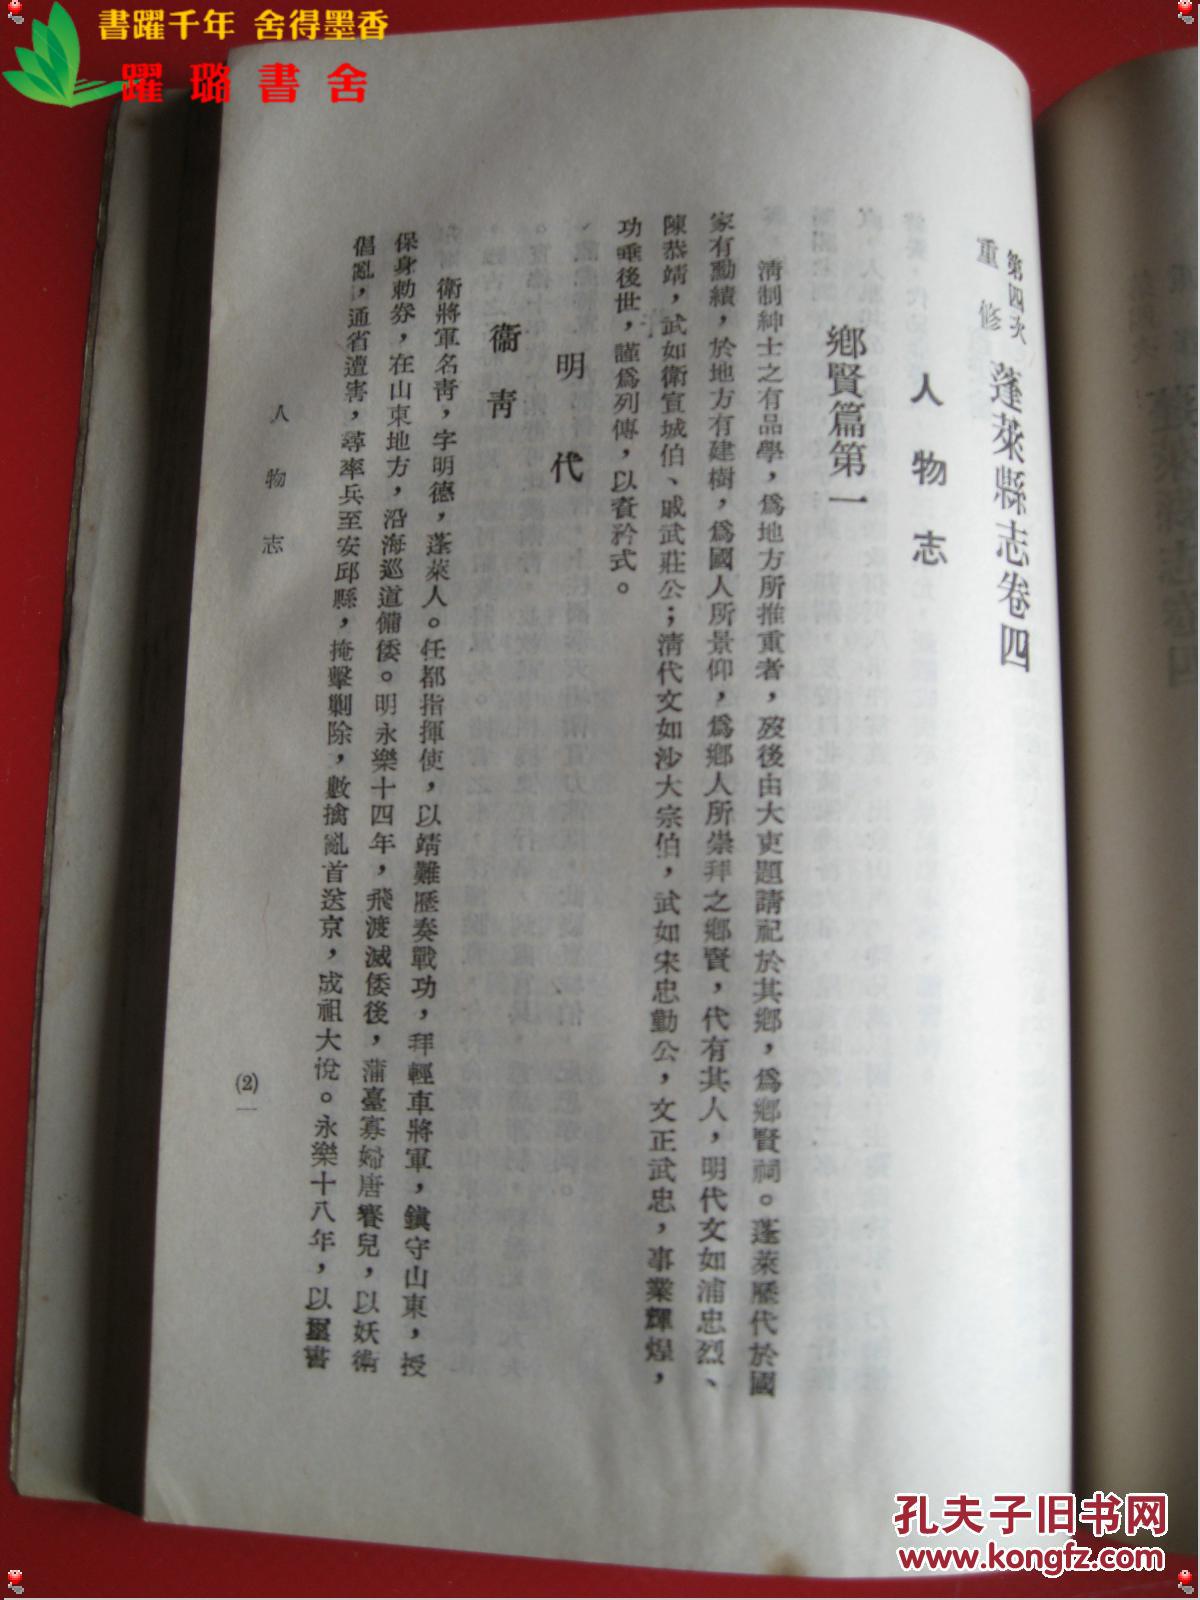 書躍千年 舍得墨香
躍璐書舍
第四次
重修
蓬萊縣志卷四
人物志
鄉賢篇第一
清制紳士之有品學，爲地方所推重者，歿後由大吏題請祀於其鄉，爲鄉賢祠。蓬萊歷代於國
家有勳績，於地方有建樹，爲國人所景仰，爲鄉人所崇拜之鄉賢，代有其人，明代文如浦忠烈、
陳恭靖，武如衛宣城伯、戚武莊公；清代文如沙大宗伯，武如宋忠勤公，文正武忠，事業輝煌，
功垂後世，謹爲列傳，以資矜式。
明代
衞靑
衛將軍名靑，字明德，蓬萊人。任都指揮使，以靖難歷奏戰功，拜輕車將軍，鎭守山東，授
保身勅券，在山東地方，沿海巡道備倭。明永樂十四年，飛渡滅倭後，蒲臺寡婦唐賽兒，以妖術
倡亂，通省遭害，尋率兵至安邱縣，掩擊剿除，數擒亂首送京，成祖大悅。永樂十八年，以璽書
人物志
(2)一
孔夫子旧书网
www.kongfz.com